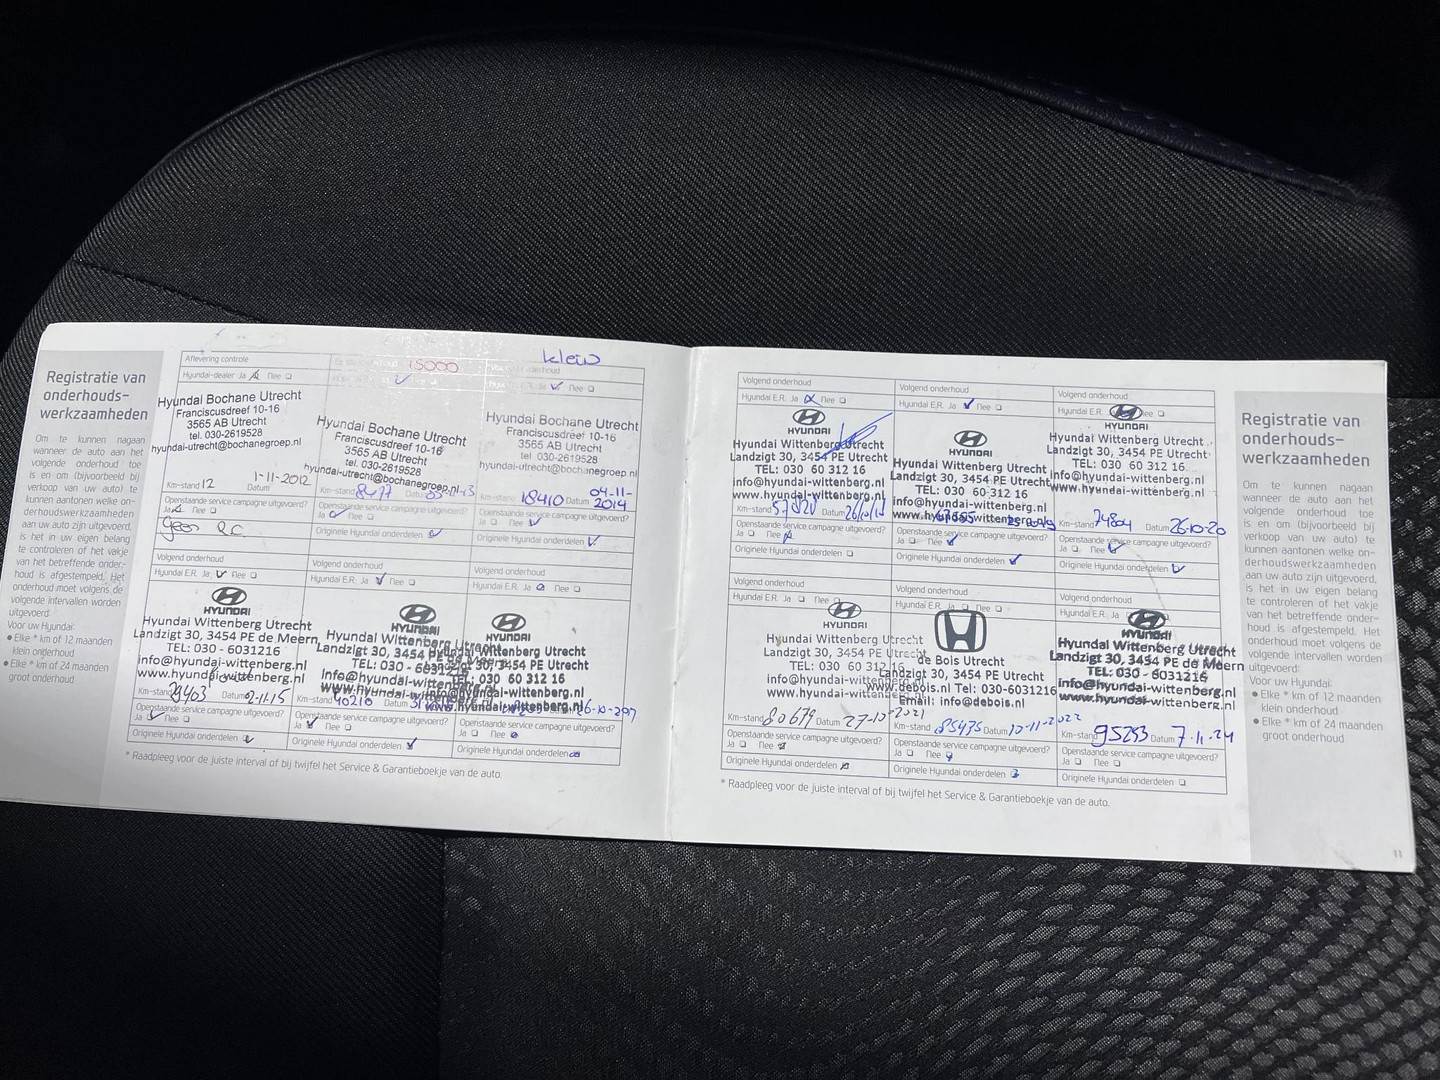 Registratie van
onderhouds-
werkzaamheden
Om te kunnen nagaan
wanneer de auto aan het
volgende onderhoud toe
is en om (bijvoorbeeld bij
verkoop van uw auto) te
kunnen aantonen welke on-
derhoudswerkzaamheden
aan uw auto zijn uitgevoerd,
is het in uw eigen belang
te controleren of het vakje
van het betreffende onder-
houd is afgestempeld. Het
onderhoud moet volgens de
volgende intervallen worden
uitgevoerd:
Voor uw Hyundai:
• Elke * km of 12 maanden
klein onderhoud
• Elke * km of 24 maanden
groot onderhoud
Aflevering controle
Hyundai-dealer Ja Nee
Hyundai Bochane Utrecht
Franciscusdreef 10-16
3565 AB Utrecht
tel. 030-2619528
hyundai-utrecht@bochanegroep.nl
Km-stand 12 Datum 1-11-2012
Openstaande service campagne uitgevoerd?
Ja Nee
geen RC
15000
Hyundai Bochane Utrecht
Franciscusdreef 10-16
3565 AB Utrecht
tel. 030-2619528
hyundai-utrecht@bochanegroep.nl
Km-stand 8477 Datum
Openstaande service campagne uitgevoerd?
Ja Nee
Originele Hyundai onderdelen
klein
Nee
Hyundai Bochane Utrecht
Franciscusdreef 10-16
3565 AB Utrecht
tel. 030-2619528
hyundai-utrecht@bochanegroep.nl
Km-stand 18410 Datum 04-11-2014
Openstaande service campagne uitgevoerd?
Ja Nee
Originele Hyundai onderdelen
Volgend onderhoud
Hyundai E.R. Ja Nee
HYUNDAI
Hyundai Wittenberg Utrecht
Landzigt 30, 3454 PE de Meern
TEL: 030 - 6031216
info@hyundai-wittenberg.nl
Km-stand 29403 Datum 2-11-15
Openstaande service campagne uitgevoerd?
Ja Nee
Originele Hyundai onderdelen
Volgend onderhoud
Hyundai E.R. Ja Nee
HYUNDAI
Hyundai Wittenberg Utrecht
Landzigt 30, 3454 PE
TEL: 030 -
info@hyundai-wittenberg
Km-stand 40210 Datum
Openstaande service campagne uitgevoerd?
Ja Nee
Originele Hyundai onderdelen
Volgend onderhoud
Hyundai E.R. Ja Nee
HYUNDAI
3454 PE Utrecht
030 60 312 16
info@hyundai-wittenberg.nl
www.hyundai-wittenberg.nl
26-10-2017
Openstaande service campagne uitgevoerd?
Ja Nee
Originele Hyundai onderdelen
* Raadpleeg voor de juiste interval of bij twijfel het Service & Garantieboekje van de auto.
Volgend onderhoud
Hyundai E.R. Ja Nee
HYUNDAI
Hyundai Wittenberg Utrecht
Landzigt 30, 3454 PE Utrecht
TEL: 030 60 312 16
info@hyundai-wittenberg.nl
www.hyundai-wittenberg.nl
Km-stand Datum
Openstaande service campagne uitgevoerd?
Ja Nee
Originele Hyundai onderdelen
Volgend onderhoud
Hyundai E.R. Ja Nee
HYUNDAI
Hyundai Wittenberg Utrecht
Landzigt 30, 3454 PE Utrecht
TEL: 030 60 312 16
info@hyundai-wittenberg.nl
Openstaande service campagne uitgevoerd?
Ja Nee
Originele Hyundai onderdelen
Volgend onderhoud
Hyundai E.R. Nee
HYUNDAI
Hyundai Wittenberg Utrecht
Landzigt 30, 3454 PE Utrecht
TEL: 030 60 312 16
info@hyundai-wittenberg.nl
www.hyundai-wittenberg.nl
Km-stand 74804 Datum 26-10-20
Openstaande service campagne uitgevoerd?
Ja Nee
Originele Hyundai onderdelen
Volgend onderhoud
Hyundai E.R. Ja Nee
HYUNDAI
Hyundai Wittenberg Utrecht
Landzigt 30, 3454 PE Utrecht
TEL: 030 60 312 16
info@hyundai-wittenberg.nl
www.hyundai-wittenberg.nl
Km-stand 80679 Datum 27-10-2021
Openstaande service campagne uitgevoerd?
Ja Nee
Originele Hyundai onderdelen
Volgend onderhoud
Hyundai E.R. Ja Nee
de Bois Utrecht
Landzigt 30, 3454 PE Utrecht
www.debois.nl Tel: 030-6031216
Email: info@debois.nl
Km-stand 85435 Datum 10-11-2022
Openstaande service campagne uitgevoerd?
Ja Nee
Originele Hyundai onderdelen
Volgend onderhoud
Hyundai E.R. Ja
HYUNDAI
Hyundai Wittenberg Utrecht
Landzigt 30, 3454 PE de Meern
TEL: 030 - 6031216
info@hyundai-wittenberg.nl
www.hyundai-wittenberg.nl
Km-stand 95253 Datum 7-11-24
Openstaande service campagne uitgevoerd?
Ja Nee
Originele Hyundai onderdelen
* Raadpleeg voor de juiste interval of bij twijfel het Service & Garantieboekje van de auto.
Registratie van
onderhouds-
werkzaamheden
Om te kunnen nagaan
wanneer de auto aan het
volgende onderhoud toe
is en om (bijvoorbeeld bij
verkoop van uw auto) te
kunnen aantonen welke on-
derhoudswerkzaamheden
aan uw auto zijn uitgevoerd,
is het in uw eigen belang
te controleren of het vakje
van het betreffende onder-
houd is afgestempeld. Het
onderhoud moet volgens de
volgende intervallen worden
uitgevoerd:
Voor uw Hyundai:
• Elke * km of 12 maanden
klein onderhoud
• Elke * km of 24 maanden
groot onderhoud
11